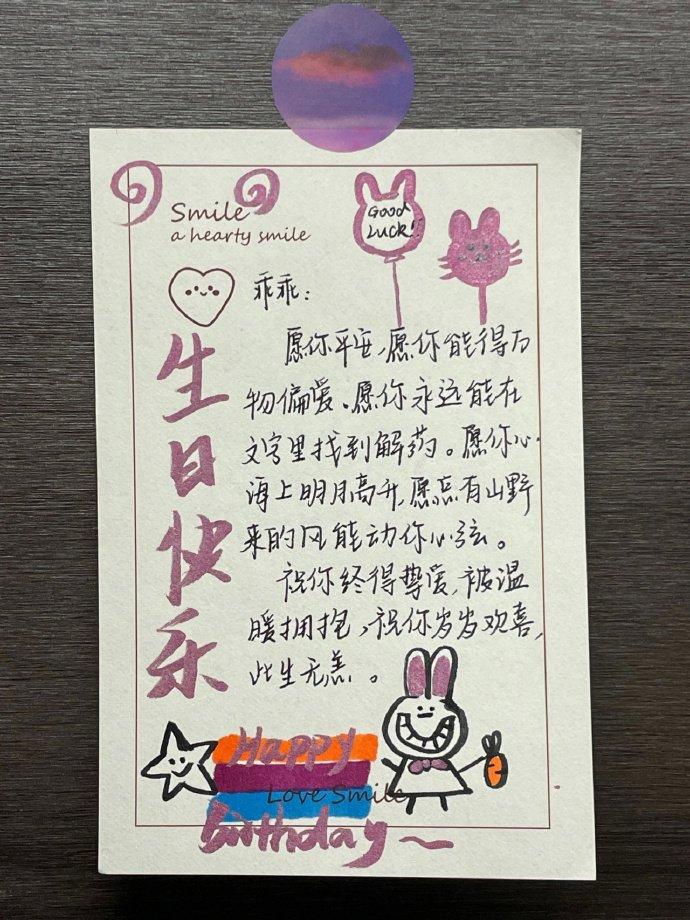 Smile
a hearty smile
Good
Luck!!
乖乖：
生日快乐
愿你平安，愿你能得万
物偏爱。愿你永远能在
文字里找到解药。愿你心
海上明月高升，愿总有山野
来的风能动你心弦。
祝你终得挚爱，被温
暖拥抱，祝你岁岁欢喜，
此生无恙。
Happy
Love Smile
Birthday~